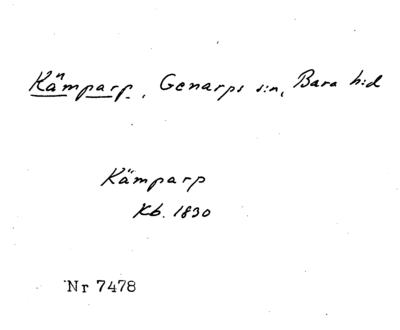 Kämparp, Genarps s:n, Bara h:d
Kämparp
Kb. 1830
Nr 7478